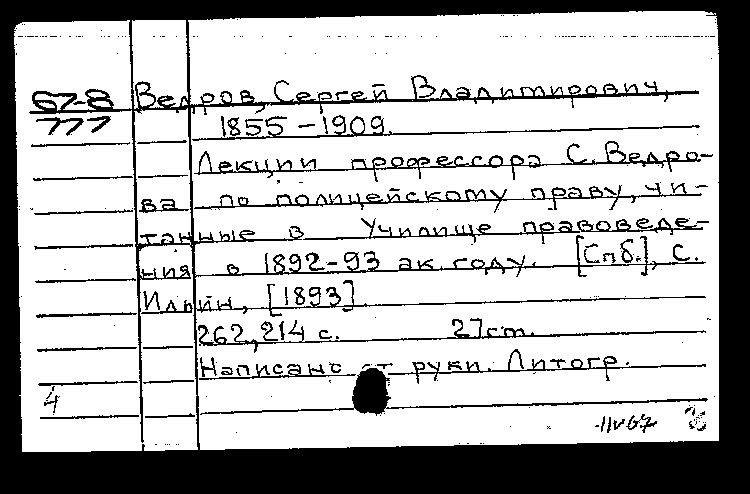 67-8 Ведров, Сергей Владимирович,
777 1855-1909.
Лекции профессора С. Ведро-
ва по полицейскому праву, чи-
танные в Училище правоведе-
ния в 1892-93 ак. году. [Спб.], С.
Ильин, [1893].
262, 214 с. 27 см.
Написано от руки. Литогр.
4